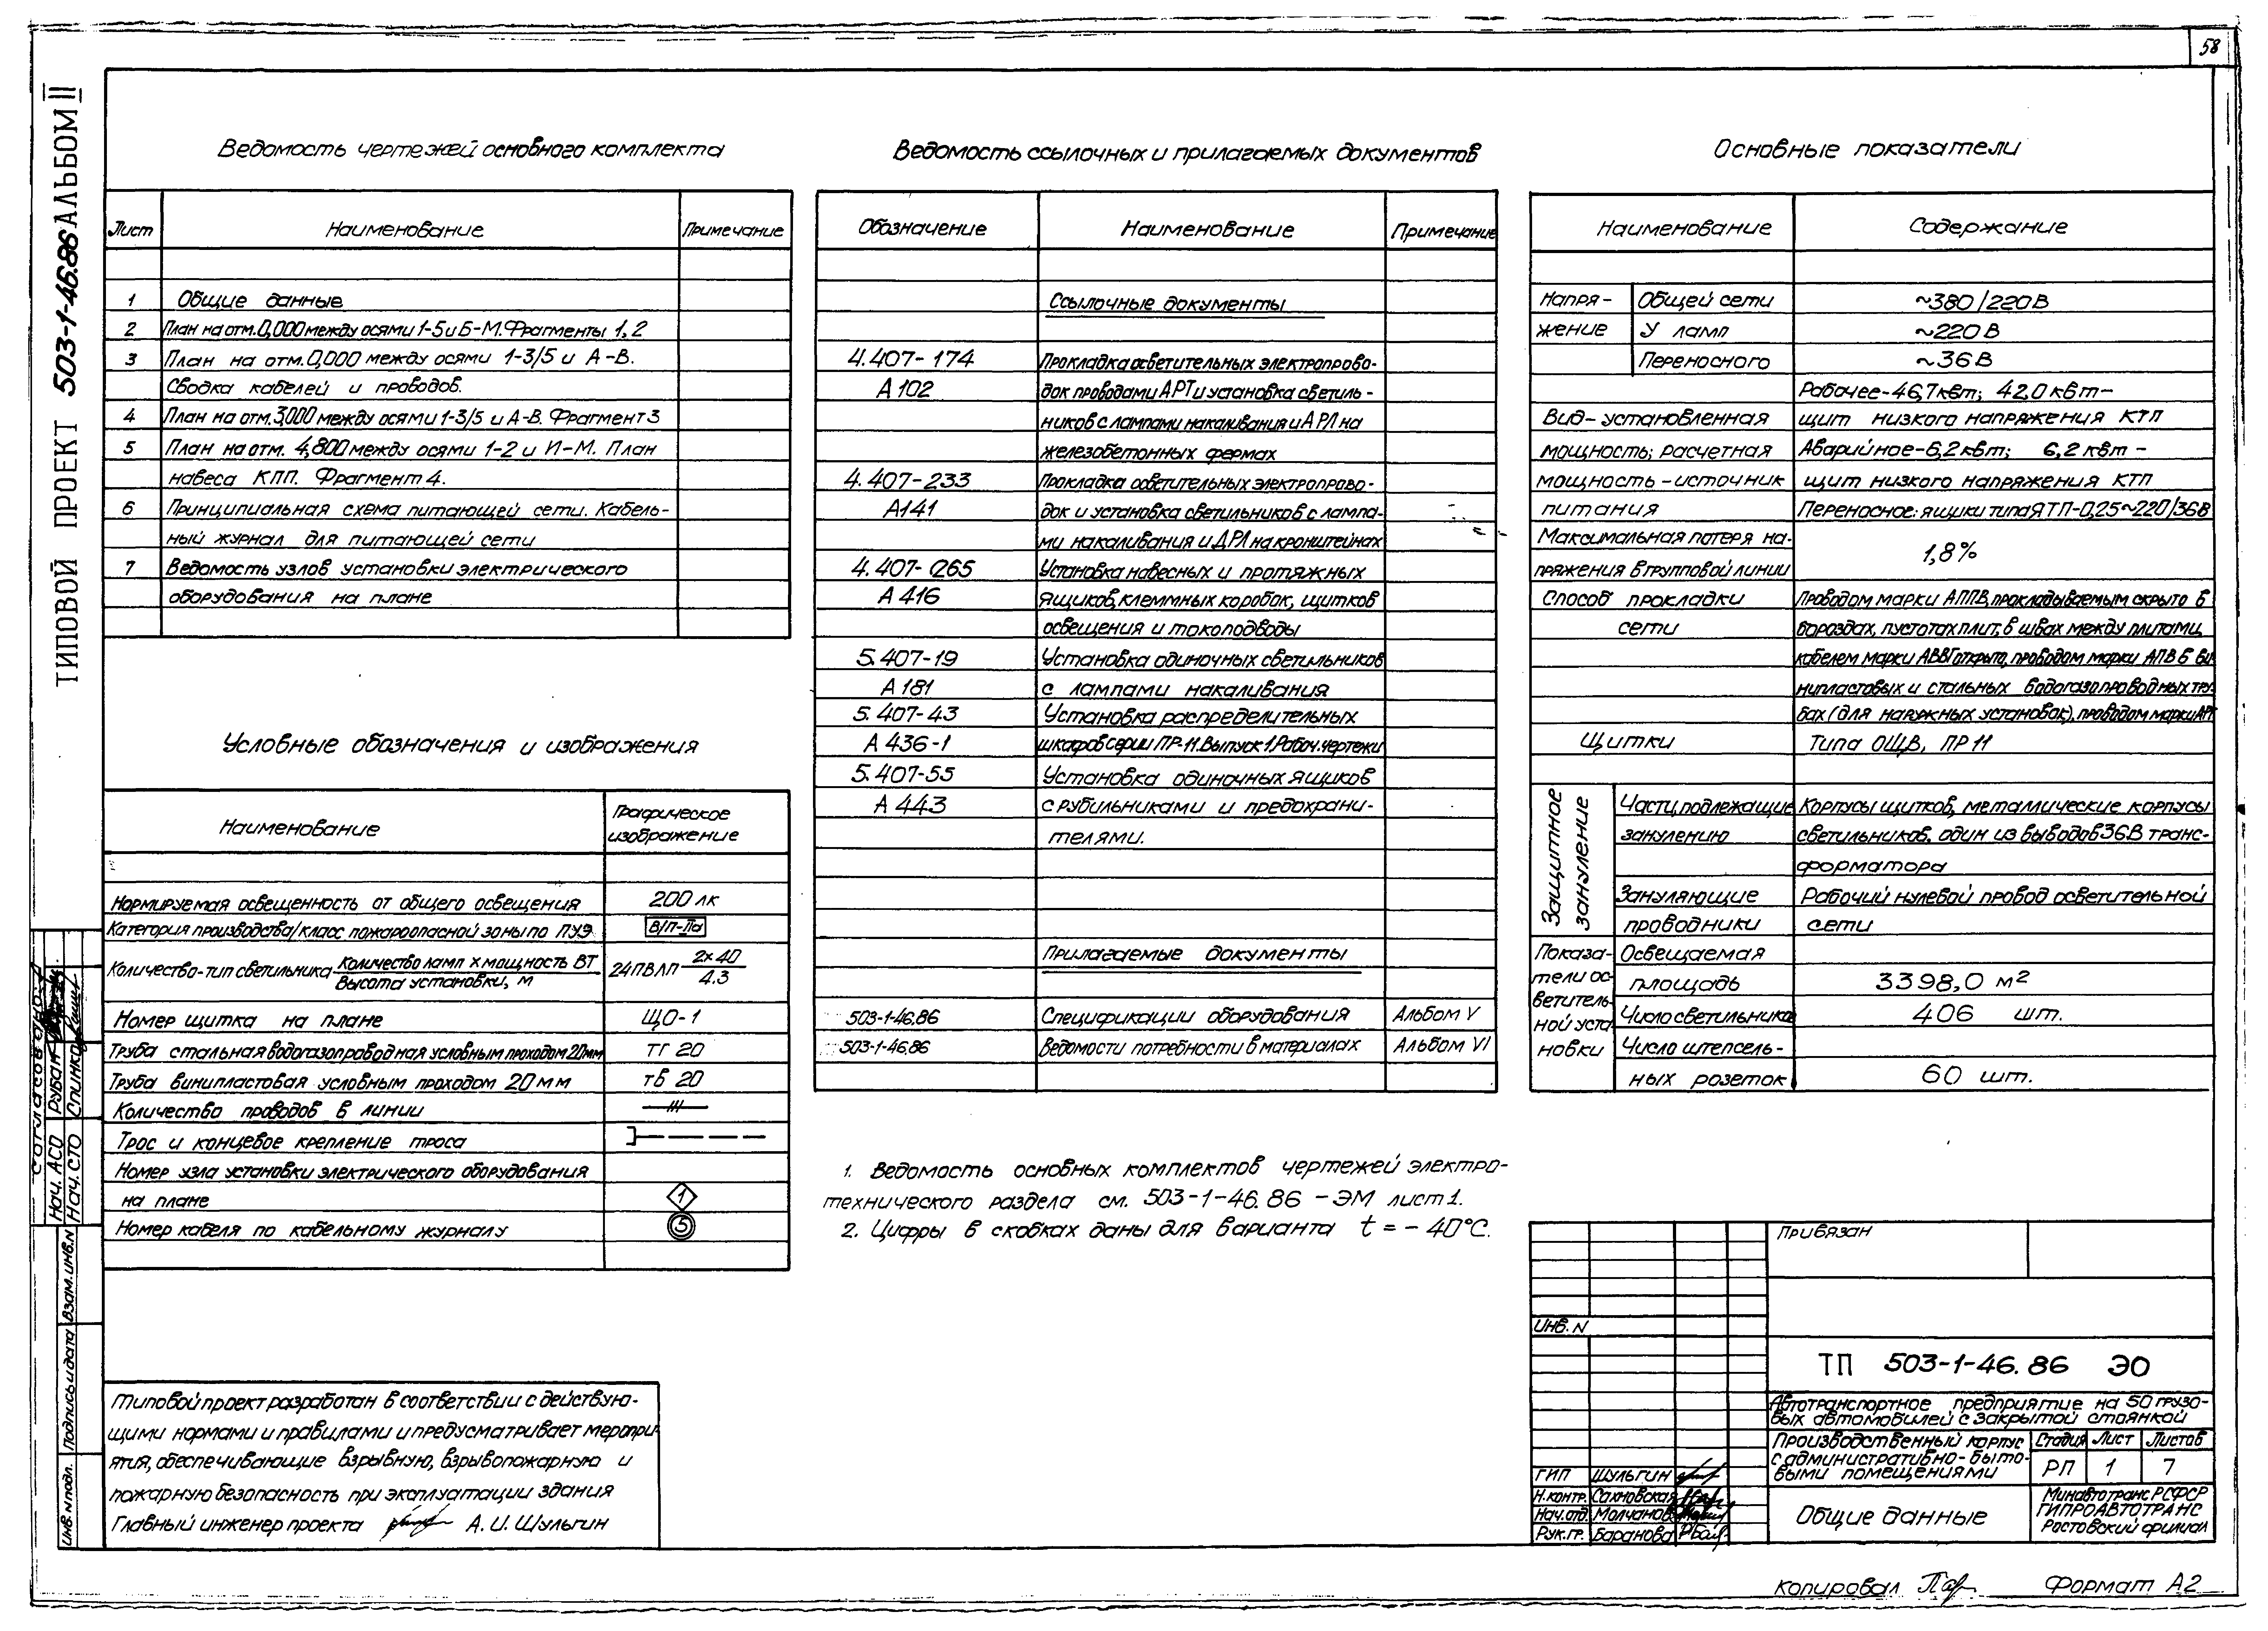 58
ТИПОВОЙ ПРОЕКТ 503-1-46.86 АЛЬБОМ II
Ведомость чертежей основного комплекта
Лист Наименование Примечание
1 Общие данные
2 План на отм. 0,000 между осями 1-5 и Б-М. Фрагменты 1, 2
3 План на отм. 0,000 между осями 1-3/5 и А-В.
Сводка кабелей и проводов.
4 План на отм. 3,000 между осями 1-3/5 и А-В. Фрагмент 3
5 План на отм. 4,800 между осями 1-2 и И-М. План
навеса КПП. Фрагмент 4.
6 Принципиальная схема питающей сети. Кабель-
ный журнал для питающей сети
7 Ведомость узлов установки электрического
оборудования на плане
Условные обозначения и изображения
Наименование Графическое
изображение
Нормируемая освещенность от общего освещения 200 лк
Категория производства/класс пожароопасной зоны по ПУЭ В/П-IIа
Количество-тип светильника Количество ламп х мощность ВТ 24ПВЛП 2х40
Высота установки, м 4.3
Номер щитка на плане ЩО-1
Труба стальная водогазопроводная условным проходом 20мм тг 20
Труба винипластовая условным проходом 20 мм тв 20
Количество проводов в линии
Трос и концевое крепление троса
Номер узла установки электрического оборудования
на плане 1
Номер кабеля по кабельному журналу 5
Типовой проект разработан в соответствии с действую-
щими нормами и правилами и предусматривает меропри-
ятия, обеспечивающие взрывную, взрывопожарную и
пожарную безопасность при эксплуатации здания
Главный инженер проекта А.И. Шульгин
Ведомость ссылочных и прилагаемых документов
Обозначение Наименование Примечание
Ссылочные документы
4.407-174 Прокладка осветительных электропрово-
А 102 док проводами АРТ и установка светиль-
ников с лампами накаливания и ДРЛ на
железобетонных фермах
4.407-233 Прокладка осветительных электропрово-
А141 док и установка светильников с лампа-
ми накаливания и ДРЛ на кронштейнах
4.407-265 Установка навесных и протяжных
А 416 ящиков, клеммных коробок, щитков
освещения и токоподводы
5.407-19 Установка одиночных светильников
А 181 с лампами накаливания
5.407-43 Установка распределительных
А 436-1 шкафов серии ПР-11. Выпуск 1. Рабоч. чертежи
5.407-55 Установка одиночных ящиков
А 443 с рубильниками и предохрани-
телями.
Прилагаемые документы
503-1-46.86 Спецификации оборудования Альбом V
503-1-46.86 Ведомости потребности в материалах Альбом VI
1. Ведомость основных комплектов чертежей электро-
технического раздела см. 503-1-46.86 -ЭМ лист 1.
2. Цифры в скобках даны для варианта t = - 40°С.
Основные показатели
Наименование Содержание
Напря- Общей сети ~380/220 В
жение У ламп ~220 В
Переносного ~36 В
Рабочее-46,7 квт; 42,0 квт-
Вид-установленная щит низкого напряжения КТП
мощность; расчетная Аварийное-6,2 квт; 6,2 квт -
мощность-источник щит низкого напряжения КТП
питания Переносное: ящики типа ЯТП-0,25~220/36В
Максимальная потеря на-
пряжения в групповой линии 1,8%
Способ прокладки Проводом марки АППВ, прокладываемым скрыто в
сети бороздах, пустотах плит, в швах между плитами,
кабелем марки АВВГ открыто, проводом марки АПВ в ви-
нипластовых и стальных водогазопроводных тру-
бах (для наружных установок), проводом марки АРТ
Щитки Типа ОЩВ, ПР 11
Защитное зануление
Части, подлежащие Корпусы щитков, металлические корпусы
занулению светильников, один из выводов 36В транс-
форматора
Зануляющие Рабочий нулевой провод осветительной
проводники сети
Показа- Освещаемая
тели ос- площадь 3398,0 м2
ветитель-
ной уста- Число светильников 406 шт.
новки Число штепсель-
ных розеток 60 шт.
Согласовано
Нач. АСО Рубан
Нач. СТО Спинко
Инв. N подл. Подпись и дата Взам. инв. N
Привязан
Инв. N
ТП 503-1-46.86 ЭО
Автотранспортное предприятие на 50 грузо-
вых автомобилей с закрытой стоянкой
Производственный корпус
с административно-быто-
выми помещениями
Стадия Лист Листов
РП 1 7
ГИП Шульгин
Н.контр. Сахновская
Нач.отд. Молчанов
Рук.гр. Баранова
Общие данные
Минавтотранс РСФСР
ГИПРОАВТОТРАНС
Ростовский филиал
Копировал Формат А2